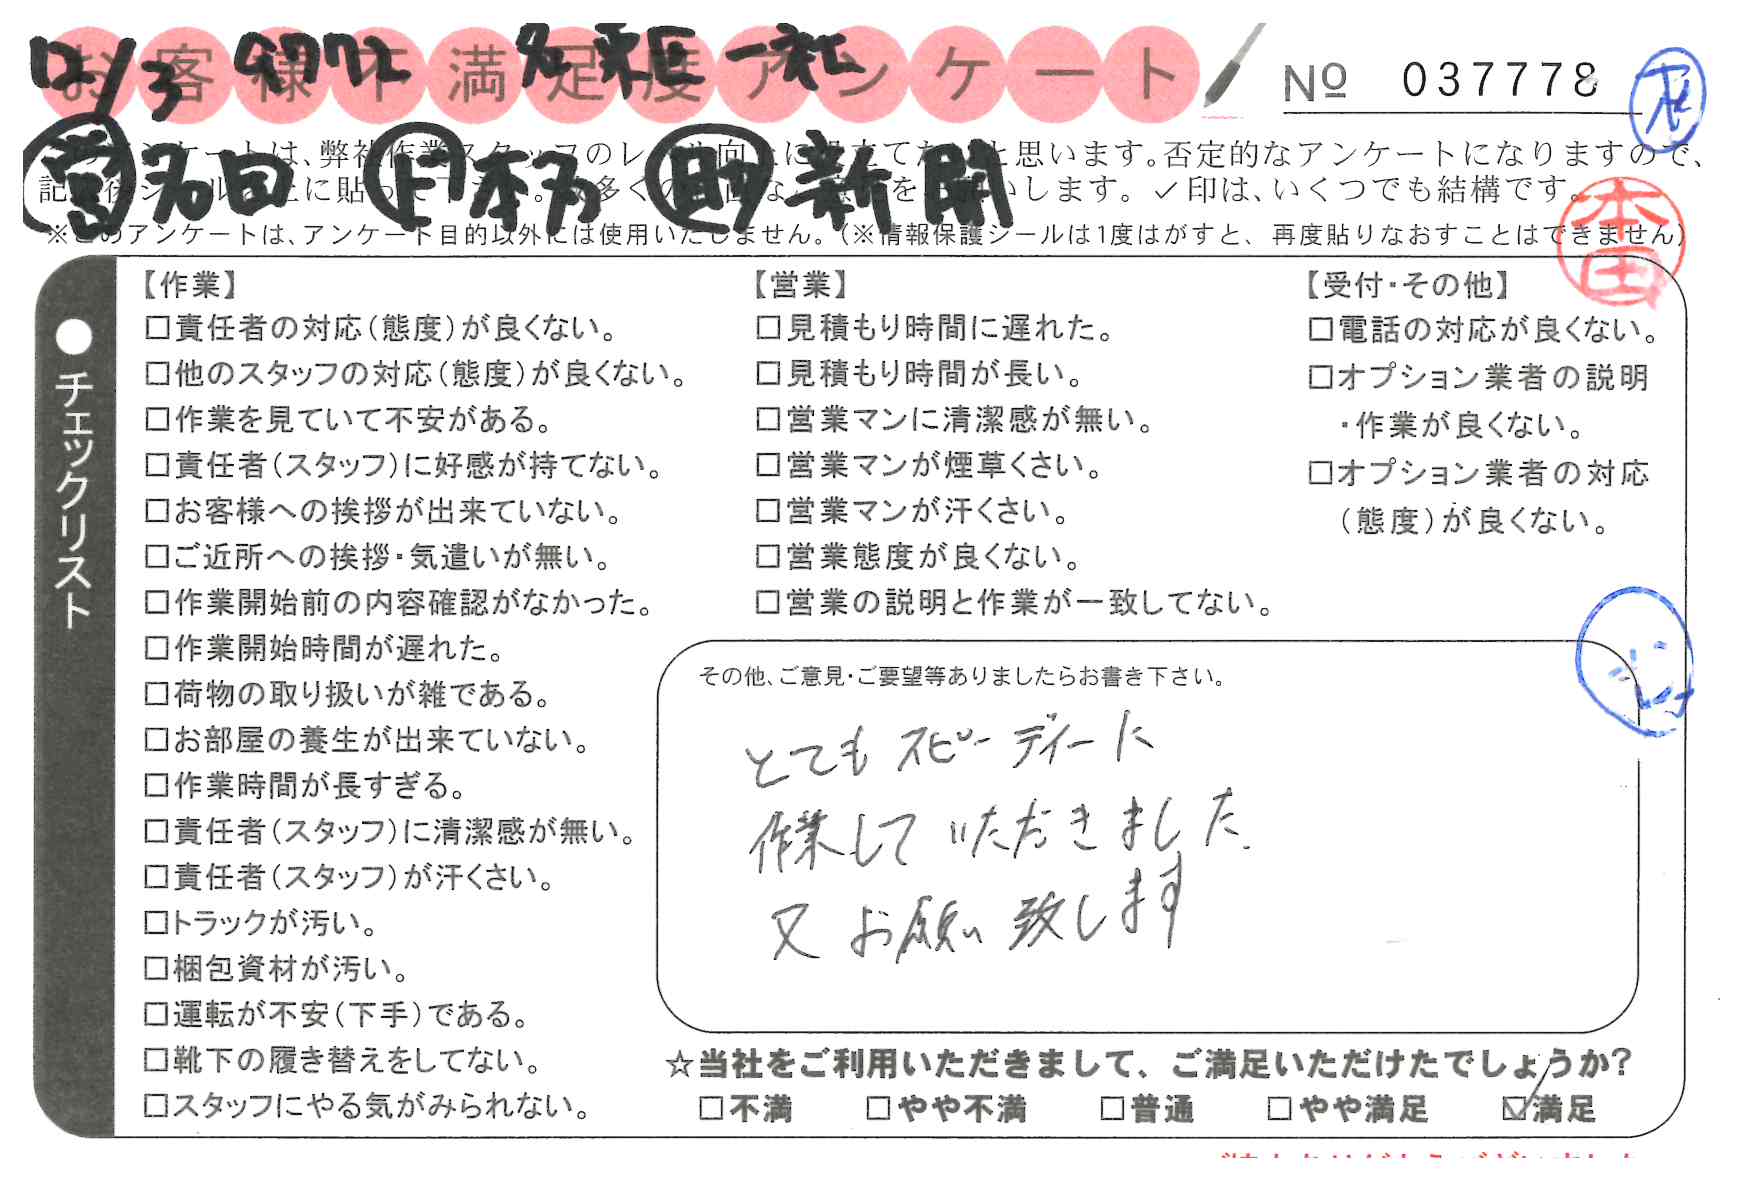 お客様不満足度アンケート
12/3 名東区 一社
№ 037778
営 名田 本多 助 新開
アンケートは、弊社作業スタッフのレベル向上に役立てたいと思います。否定的なアンケートになりますので、
※このアンケートは、アンケート目的以外には使用いたしません。(※情報保護シールは1度はがすと、再度貼りなおすことはできません)
本田
●チェックリスト
【作業】
□責任者の対応(態度)が良くない。
□他のスタッフの対応(態度)が良くない。
□作業を見ていて不安がある。
□責任者(スタッフ)に好感が持てない。
□お客様への挨拶が出来ていない。
□ご近所への挨拶・気遣いが無い。
□作業開始前の内容確認がなかった。
□作業開始時間が遅れた。
□荷物の取り扱いが雑である。
□お部屋の養生が出来ていない。
□作業時間が長すぎる。
□責任者(スタッフ)に清潔感が無い。
□責任者(スタッフ)が汗くさい。
□トラックが汚い。
□梱包資材が汚い。
□運転が不安(下手)である。
□靴下の履き替えをしてない。
□スタッフにやる気がみられない。
【営業】
□見積もり時間に遅れた。
□見積もり時間が長い。
□営業マンに清潔感が無い。
□営業マンが煙草くさい。
□営業マンが汗くさい。
□営業態度が良くない。
□営業の説明と作業が一致してない。
【受付・その他】
□電話の対応が良くない。
□オプション業者の説明
・作業が良くない。
□オプション業者の対応
(態度)が良くない。
その他、ご意見・ご要望等ありましたらお書き下さい。
とてもスピーディーに
作業して いただきました
又 お願い致します
☆当社をご利用いただきまして、ご満足いただけたでしょうか?
□不満 □やや不満 □普通 □やや満足 ☑満足